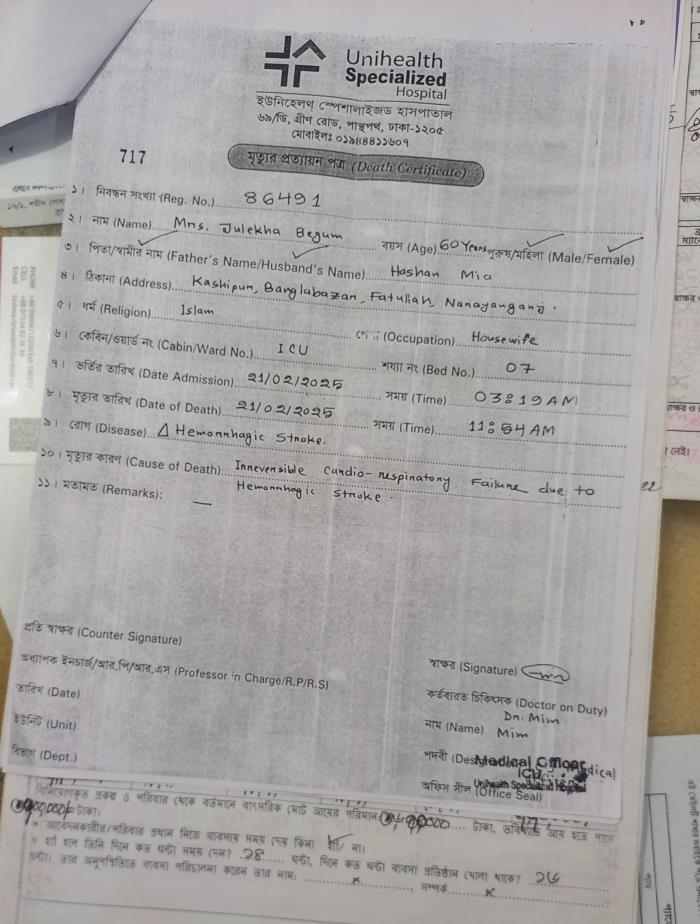 Unihealth
Specialized
Hospital
ইউনিহেলথ স্পেশালাইজড হাসপাতাল
৬৯/ডি, গ্রীণ রোড, পান্থপথ, ঢাকা-১২০৫
মোবাইলঃ ০১৯৪৪৪১১৬০৭
717
মৃত্যুর প্রত্যয়িন পত্র (Death Certificate)
১। নিবন্ধন সংখ্যা (Reg. No.) 86491
২। নাম (Name) Mrs. Julekha Begum বয়স (Age) 60 Years পুরুষ/মহিলা (Male/Female)
৩। পিতা/স্বামীর নাম (Father's Name/Husband's Name) Hashan Mia
৪। ঠিকানা (Address) Kashipur, Banglabazar, Fatullah, Narayanganj.
৫। ধর্ম (Religion) Islam (Occupation) Housewife
৬। কেবিন/ওয়ার্ড নং (Cabin/Ward No.) ICU শয্যা নং (Bed No.) 07
৭। ভর্তির তারিখ (Date Admission) 21/02/2025 সময় (Time) 03:19 AM
৮। মৃত্যুর তারিখ (Date of Death) 21/02/2025 সময় (Time) 11:54 AM
৯। রোগ (Disease) Δ Hemorrhagic Stroke.
১০। মৃত্যুর কারণ (Cause of Death) Irreversible cardio-respiratory Failure due to
Hemorrhagic stroke.
১১। মতামত (Remarks): —
22
প্রতি স্বাক্ষর (Counter Signature)
অধ্যাপক ইনচার্জ/আর.পি/আর.এস (Professor in Charge/R.P/R.S)
তারিখ (Date)
ইউনিট (Unit)
বিভাগ (Dept.)
স্বাক্ষর (Signature)
কর্তব্যরত চিকিৎসক (Doctor on Duty)
Dr. Mim
নাম (Name) Mim
পদবী Medical Officer
ICU
Unihealth Specialized Hospital
অফিস সীল (Office Seal)
বিনিয়োগকৃত প্রকল্প ও পরিবার থেকে বর্তমানে বাৎসরিক মোট আয়ের পরিমান টাকা, ভবিষ্যতে আয় হতে পারে
টাকা।
আবেদনকারীর/পরিবার প্রধান নিজে ব্যবসায় সময় দেয় কিনা হ্যাঁ/ না।
হ্যাঁ হলে তিনি দিনে কত ঘন্টা সময় দেন? ঘন্টা, দিনে কত ঘন্টা ব্যবসা প্রতিষ্ঠান খোলা থাকে?
ঘন্টা। তার অনুপস্থিতিতে ব্যবসা পরিচালনা করেন তার নাম: x , সম্পর্ক x